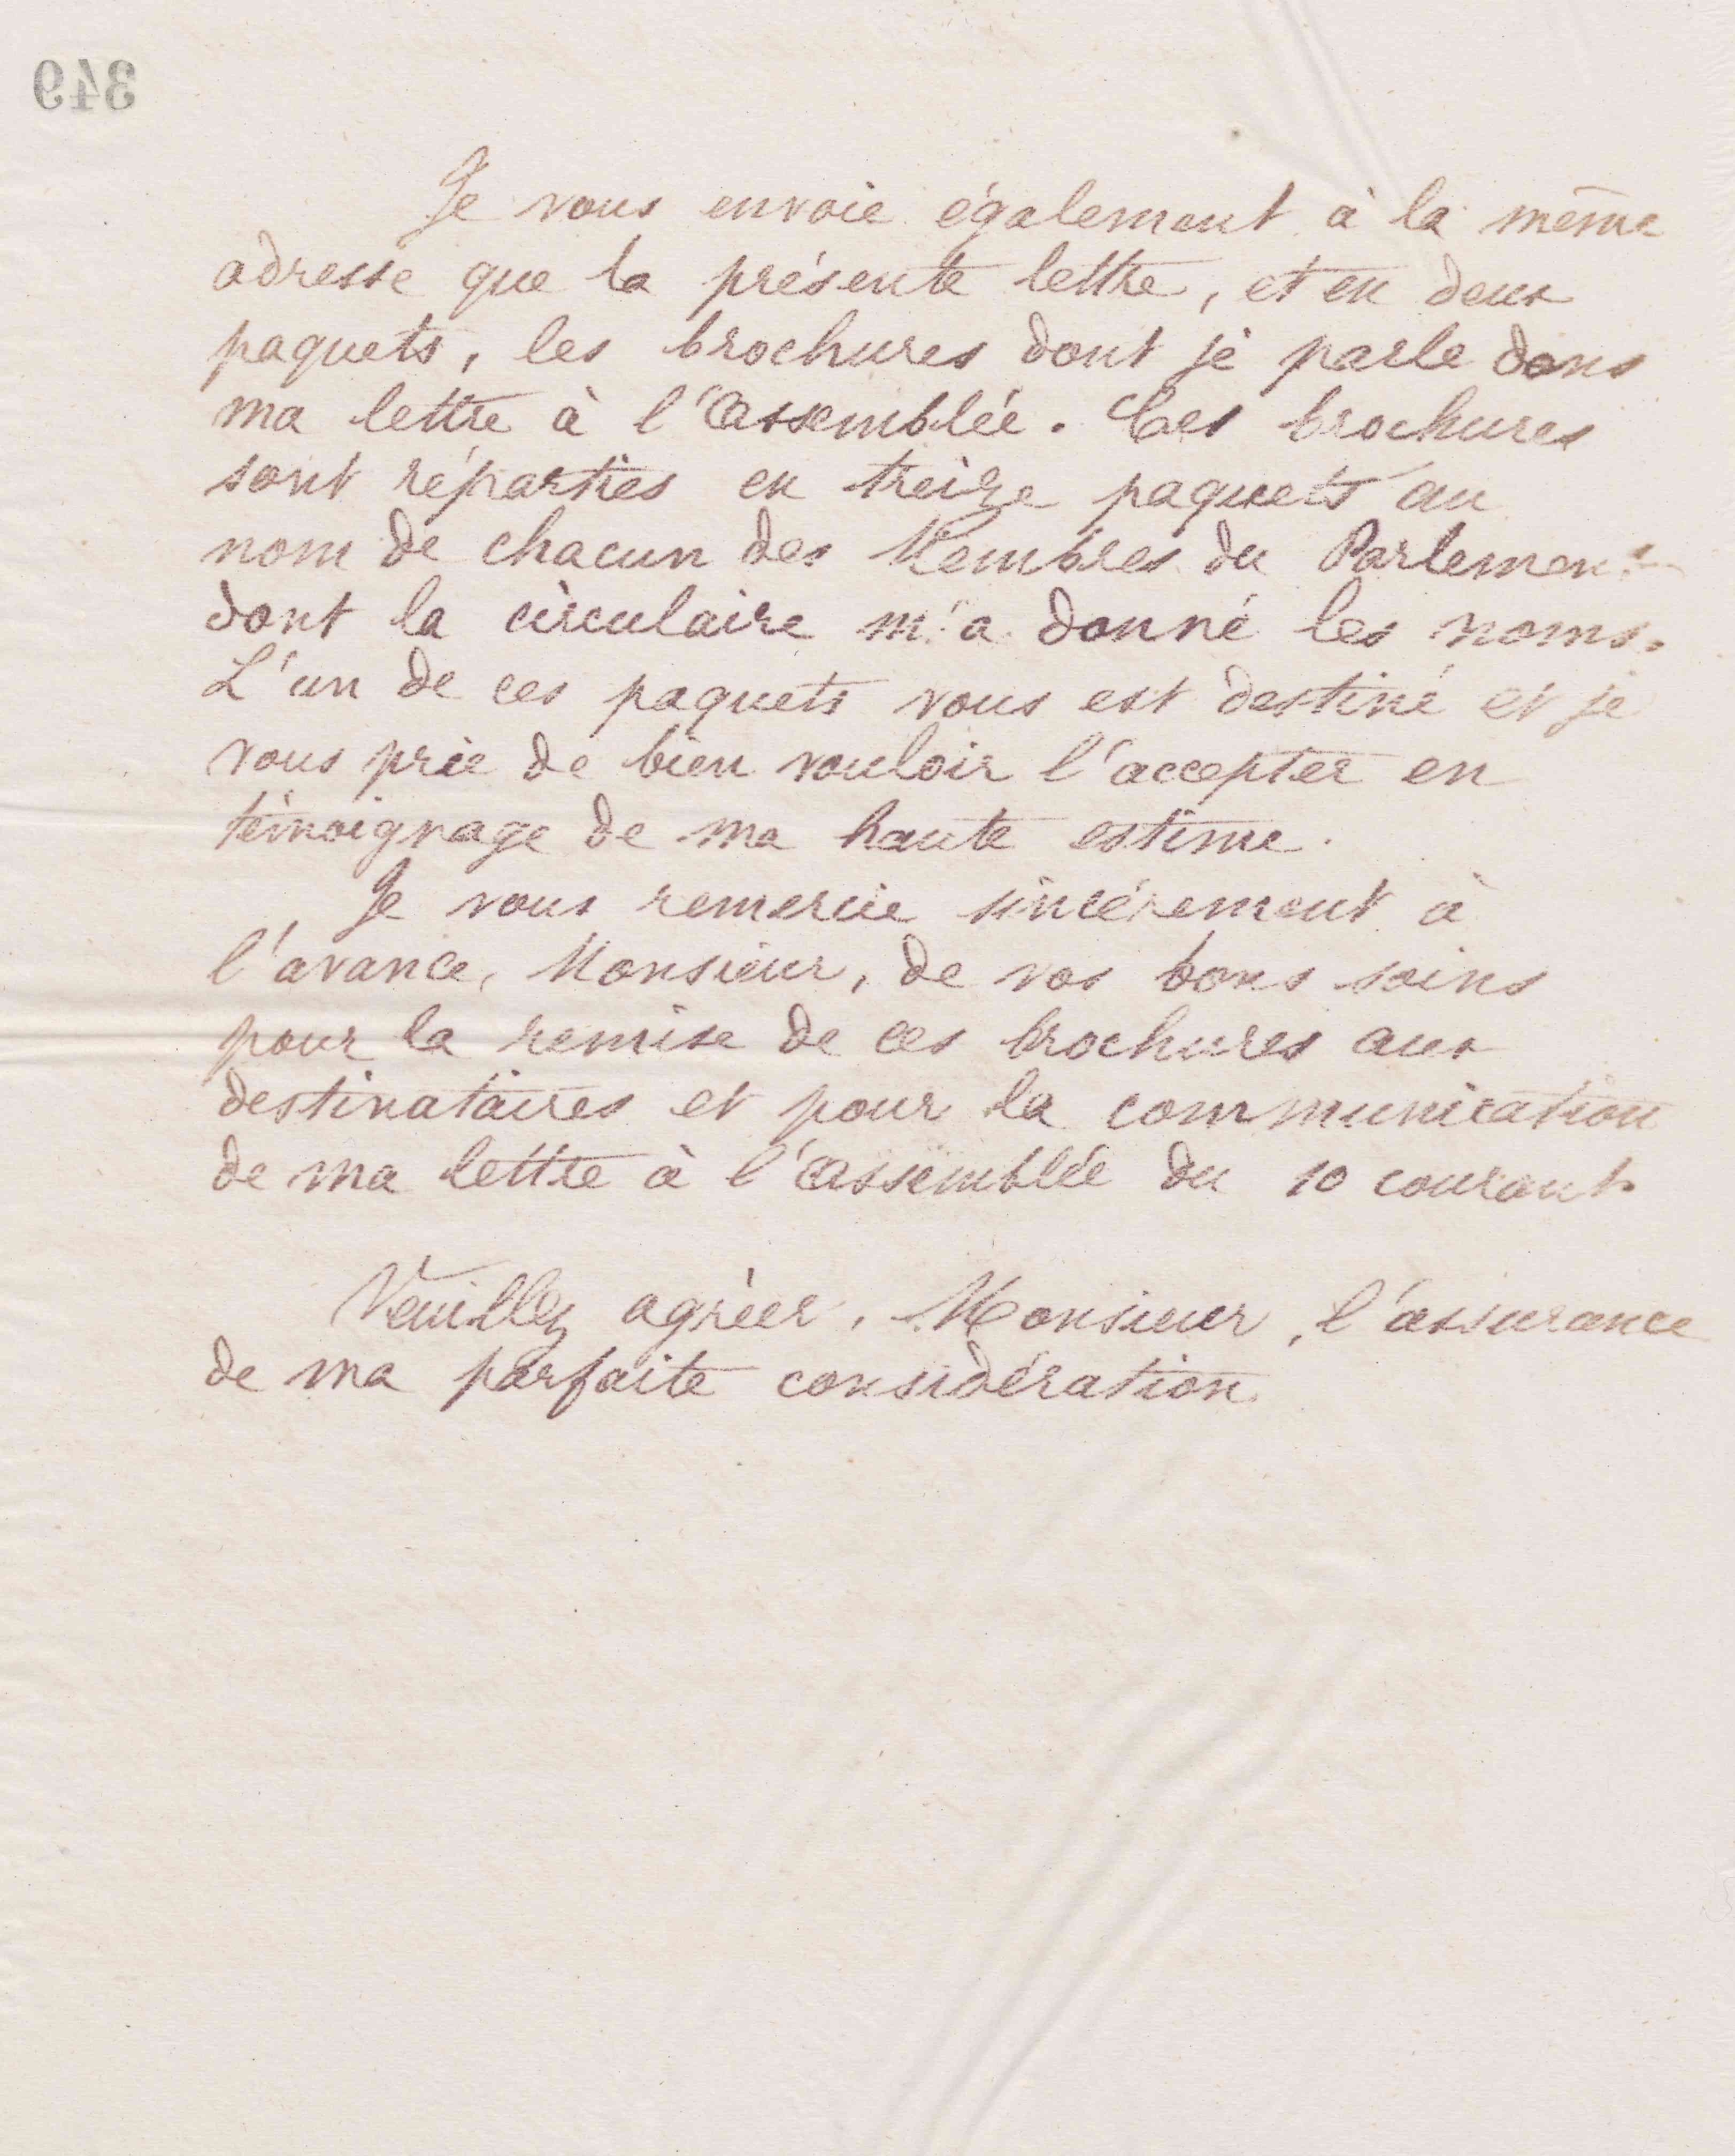 349
Je vous envoie également à la même
adresse que la présente lettre, et en deux
paquets, les brochures dont je parle dans
ma lettre à l'Assemblée. Ces brochures
sont réparties en treize paquets au
nom de chacun des Membres du Parlement
dont la circulaire m'a donné les noms.
L'un de ces paquets vous est destiné et je
vous prie de bien vouloir l'accepter en
témoignage de ma haute estime.
Je vous remercie sincérement à
l'avance, Monsieur, de vos bons soins
pour la remise de ces brochures aux
destinataires et pour la communication
de ma lettre à l'Assemblée du 10 courant.
Veuillez agréer, Monsieur, l'assurance
de ma parfaite considération.